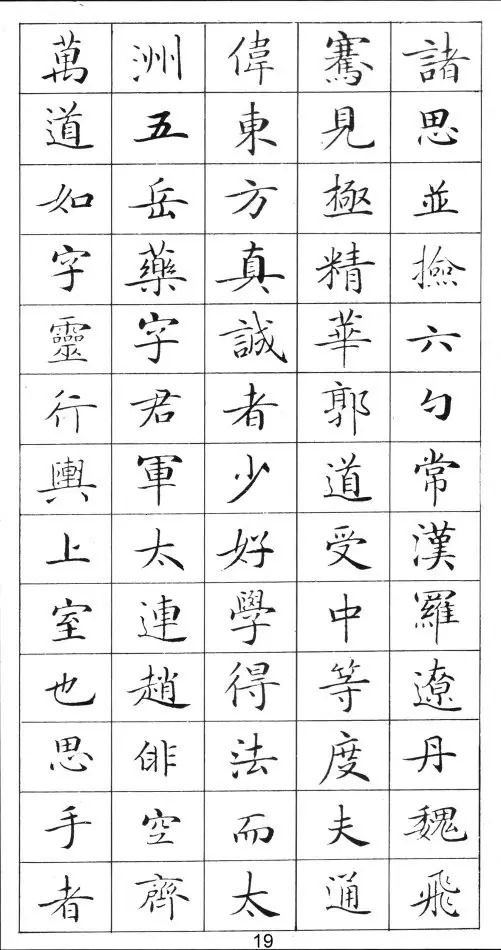 諸思並撿六勺常漢羅遼丹魏飛
騫見極精華郭道受中等度夫通
偉東方真誠者少好學得法而太
洲五岳藥字君軍太連趙俳空齊
萬道如字靈行輿上室也思手者
19